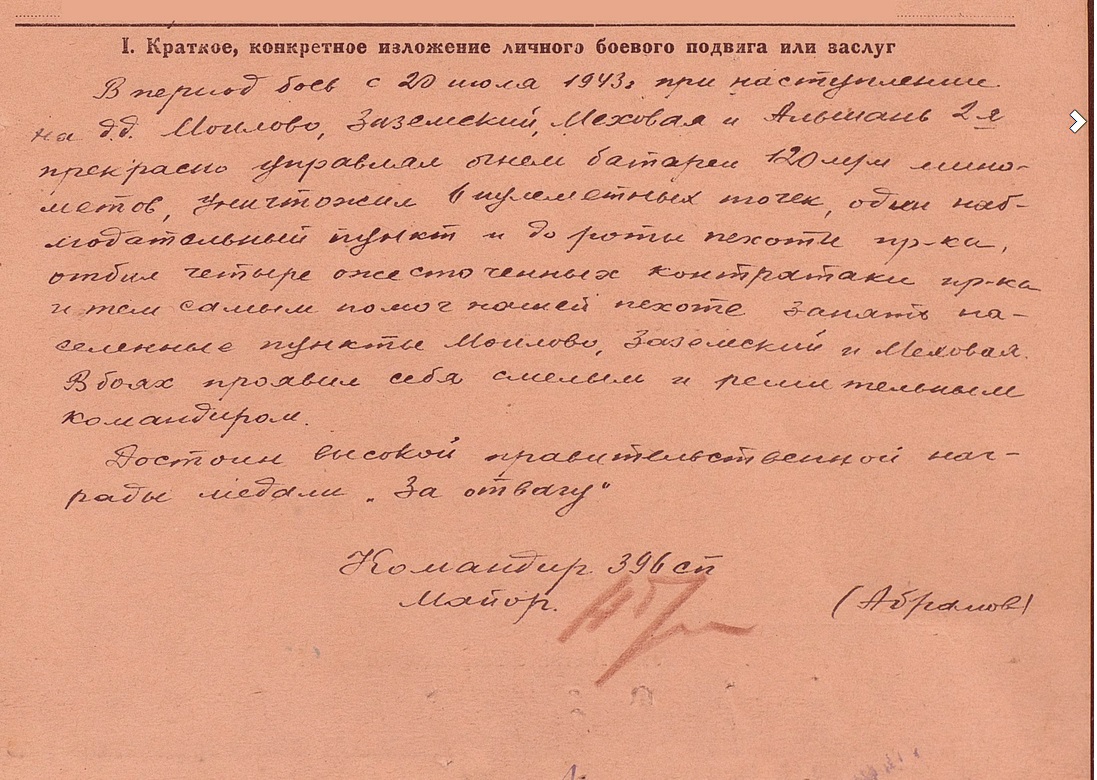 I. Краткое, конкретное изложение личного боевого подвига или заслуг
В период боев с 20 июля 1943г при наступлении
на д.д. Моилово, Заземский, Меховая и Альшань 2-я
прекрасно управлял огнем батареи 120 м/м мино-
метов, уничтожил 6 пулеметных точек, один наб-
людательный пункт и до роты пехоты пр-ка,
отбил четыре ожесточенных контратаки пр-ка
и тем самым помог нашей пехоте занять на-
селенные пункты Моилово, Заземский и Меховая.
В боях проявил себя смелым и решительным
командиром.
Достоин высокой правительственной наг-
рады медали „За отвагу"
Командир 396 сп
Майор.
(Абрамов)